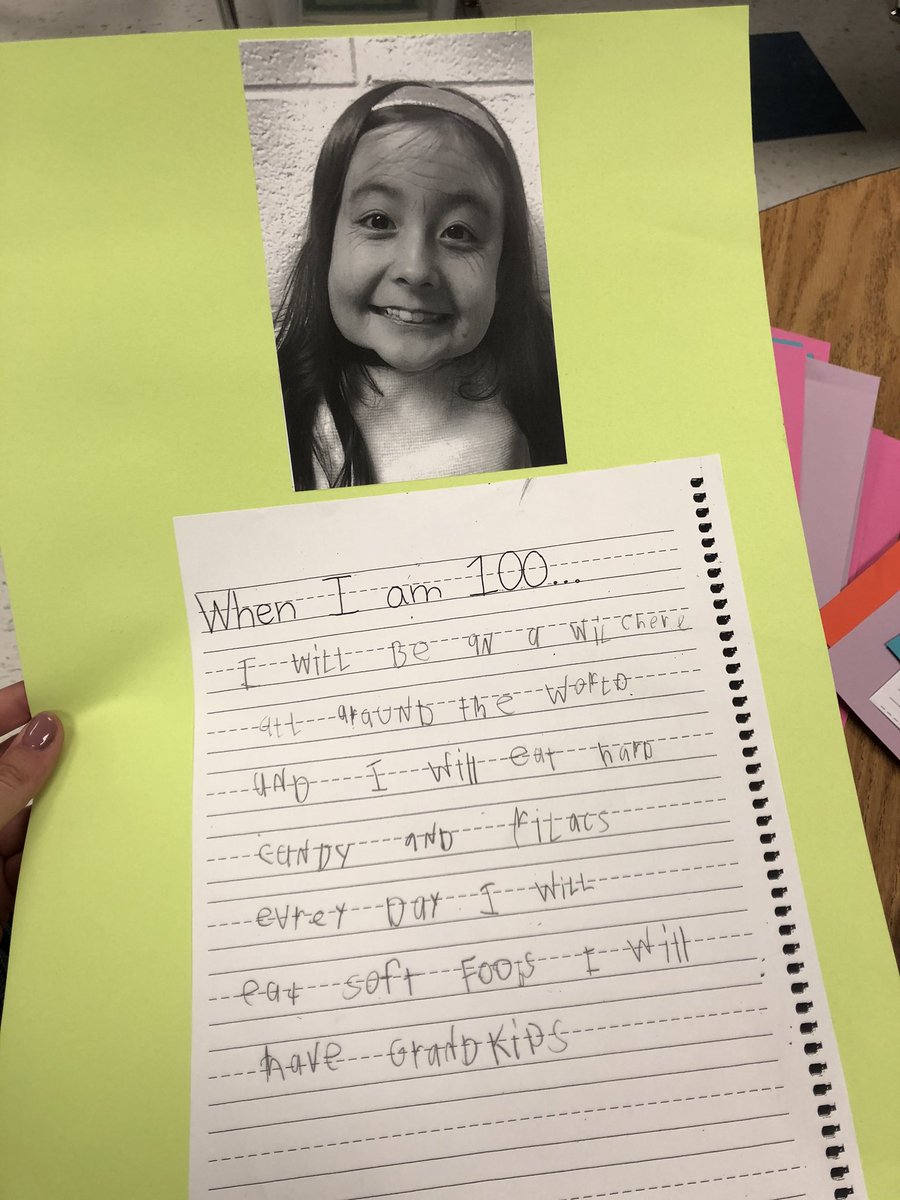 When I am 100...
I will Be an a wilchere
all araund the world.
and I will eat hard
candy and fitacs
evrey Day I will
eat soft Foods I will
have GrandKids